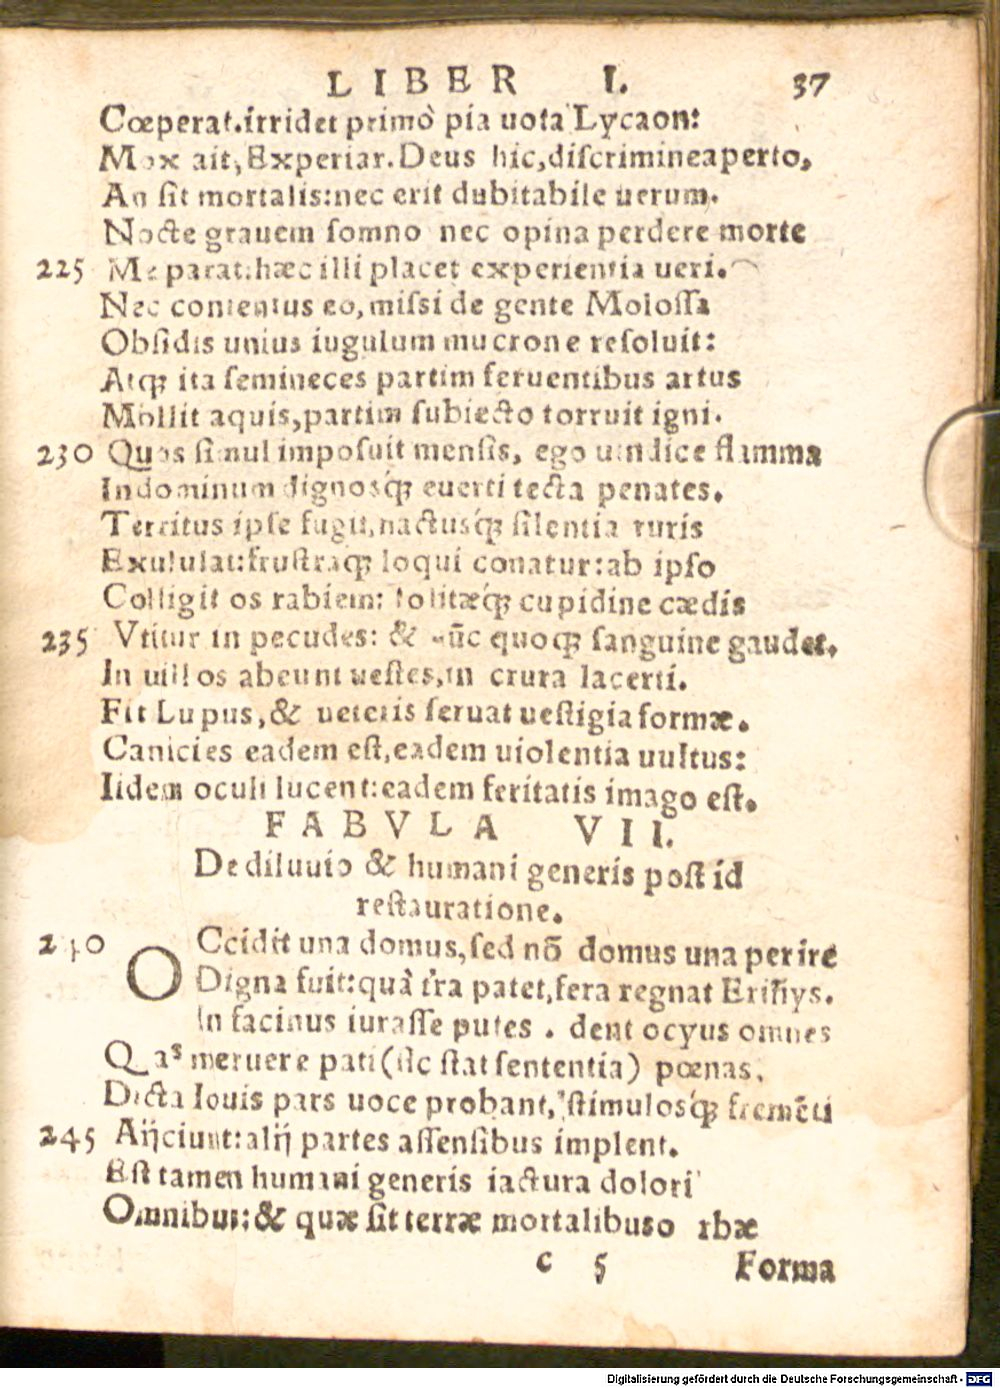 LIBER I. 37
Cœperat.irridet primò pia uota Lycaon:
Mox ait, Experiar. Deus hic, discrimine aperto,
An sit mortalis: nec erit dubitabile uerum.
Nocte grauem somno nec opina perdere morte
225 Me parat: hæc illi placet experientia ueri.
Nec contentus eo, missi de gente Molossa
Obsidis unius iugulum mucrone resoluit:
Atq; ita semineces partim feruentibus artus
Mollit aquis, partim subiecto torruit igni.
230 Quos simul imposuit mensis, ego uindice flamma
In dominum dignosq́; euerti tecta penates.
Territus ipse fugit, nactusq́; silentia ruris
Exululat: frustraq; loqui conatur: ab ipso
Colligit os rabiem: solitæq́; cupidine cædis
235 Vtitur in pecudes: & nūc quoq; sanguine gaudet.
In uillos abeunt uestes, in crura lacerti.
Fit Lupus, & ueteris seruat uestigia formæ.
Canicies eadem est, eadem uiolentia uultus:
Iidem oculi lucent: eadem feritatis imago est.
FABVLA VII.
De diluuio & humani generis post id
restauratione.
240 OCcidit una domus, sed nō domus una perire
Digna fuit: quà tr̃a patet, fera regnat Eriñys.
In facinus iurasse putes . dent ocyus omnes
Quas meruere pati (sic stat sententia) pœnas.
Dicta Iouis pars uoce probant, stimulosq́; fremēti
245 Aijciunt: alij partes assensibus implent.
Est tamen humani generis iactura dolori
Omnibus: & quæ sit terræ mortalibus o rbæ
c 5 Forma
Digitalisierung gefördert durch die Deutsche Forschungsgemeinschaft - DFG